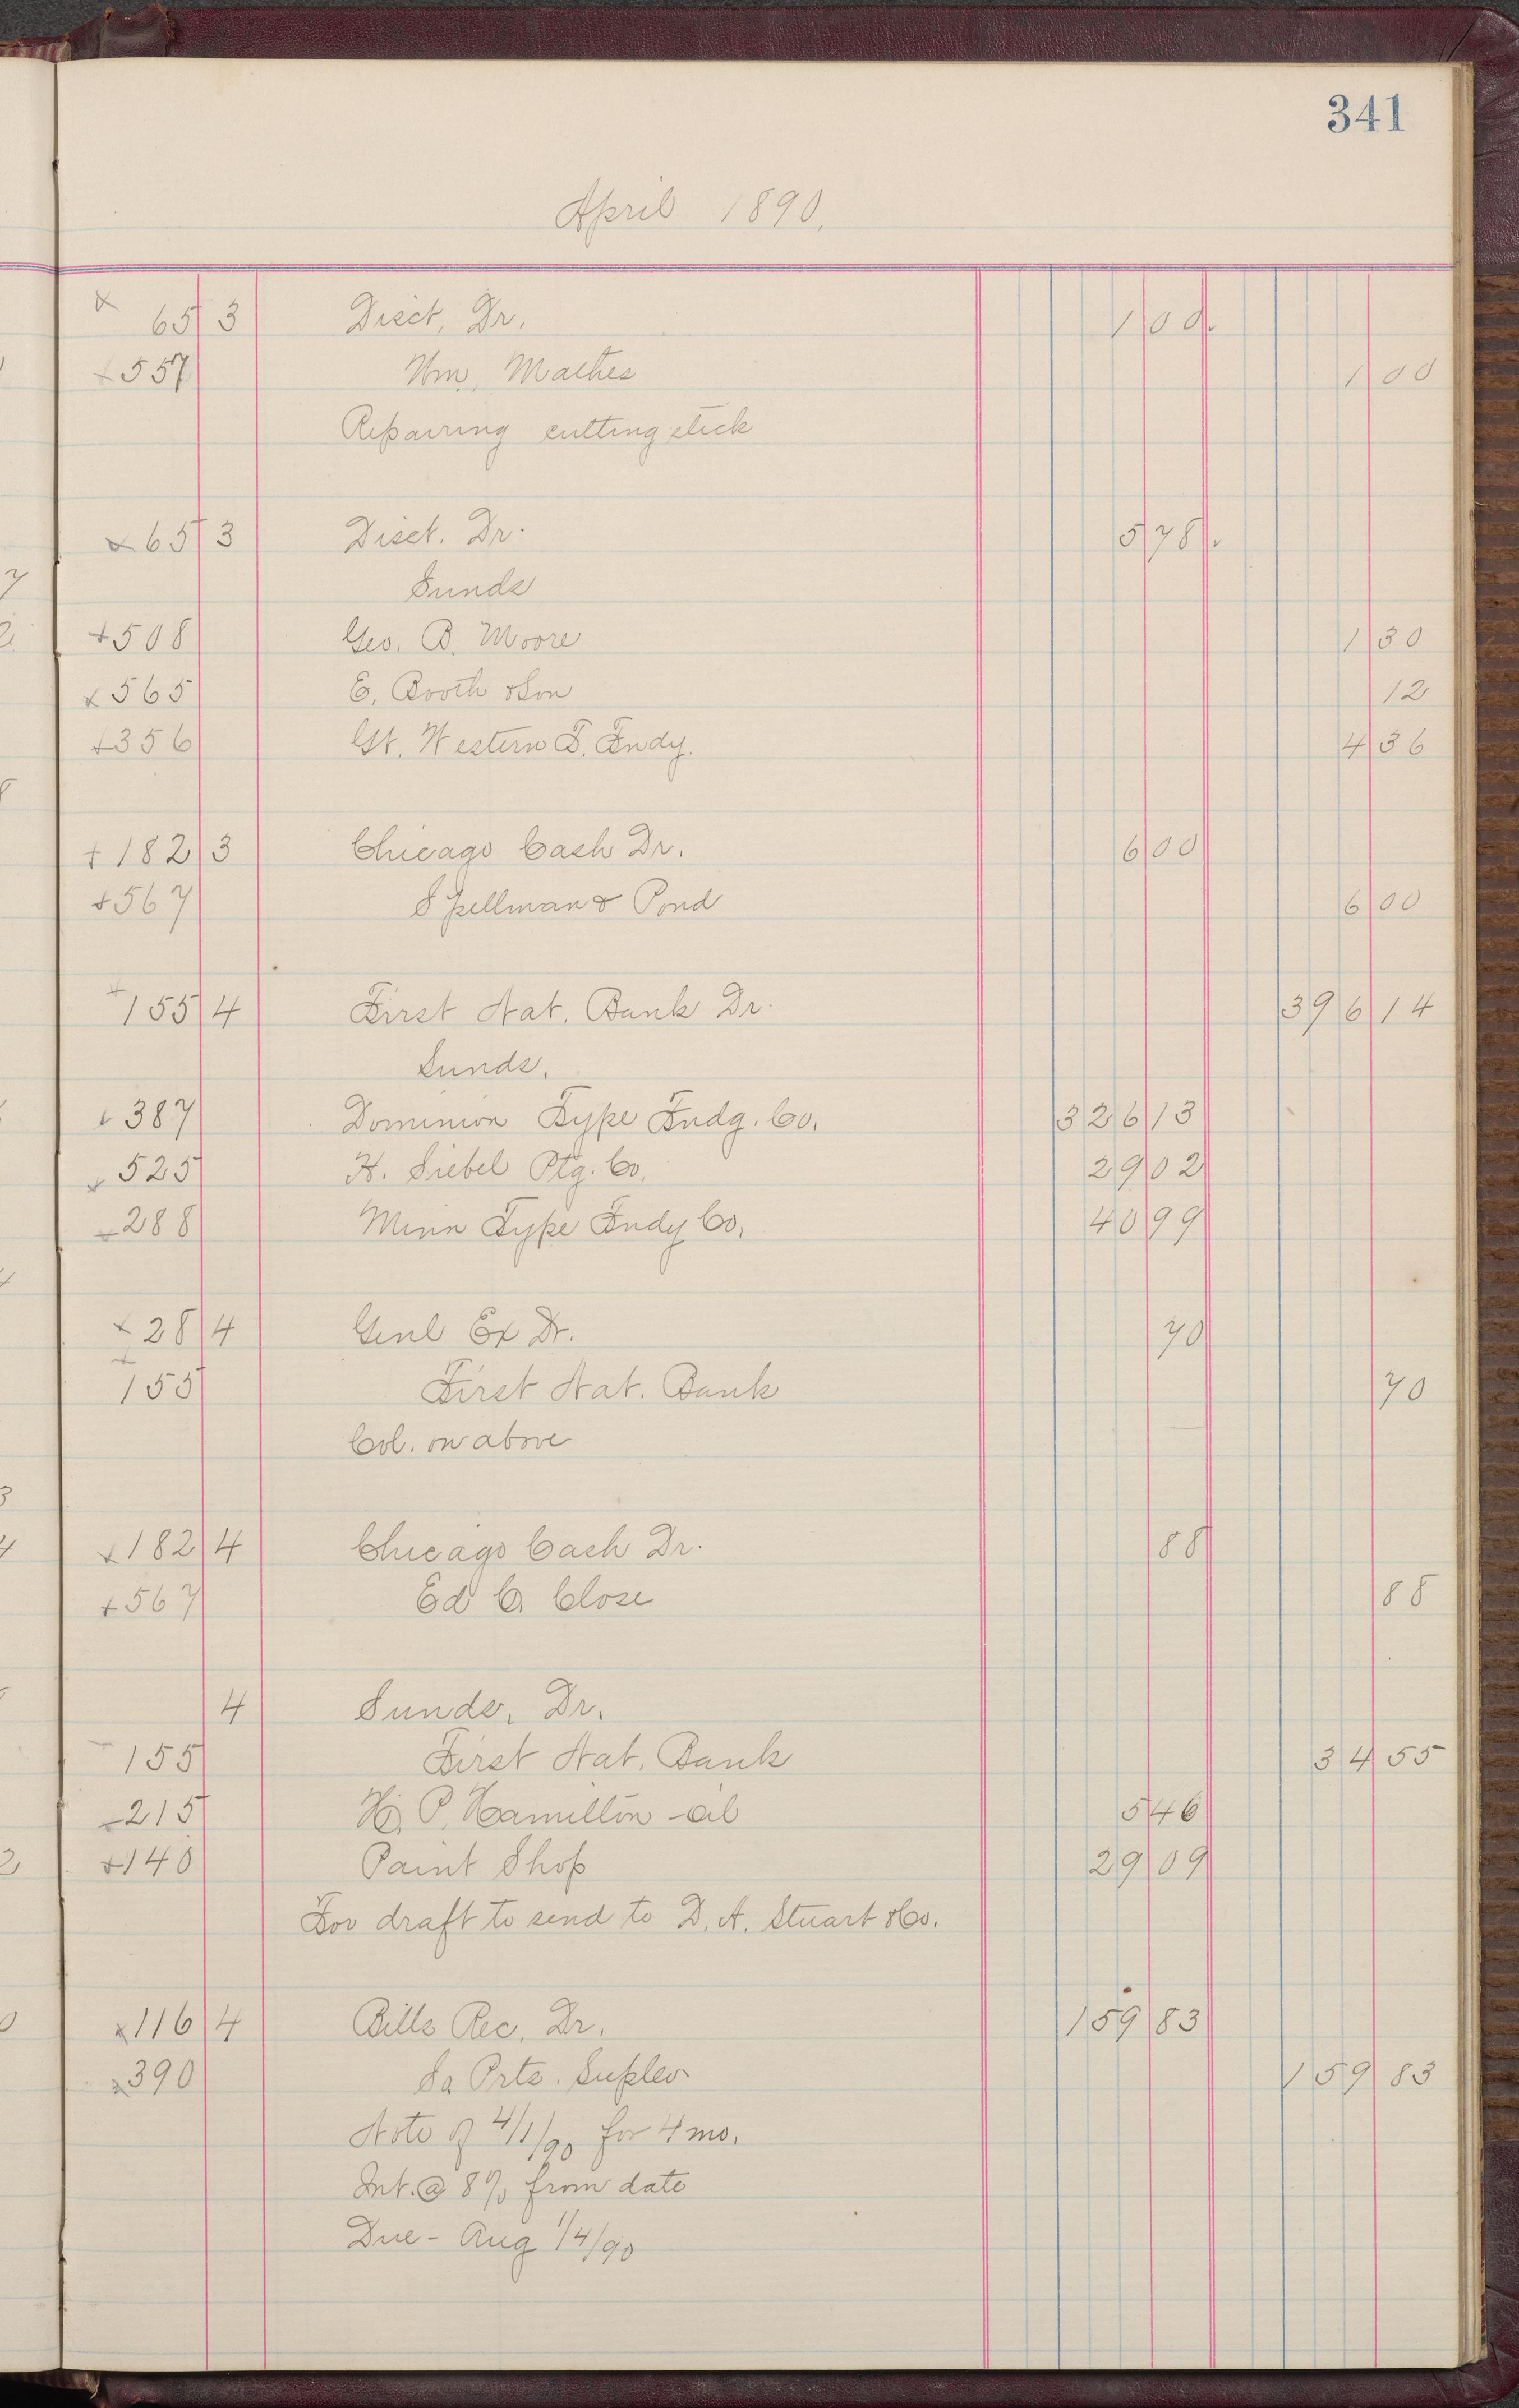 341
April 1890.
x 65 3 Disct. Dr. 1 00.
+ 557 Wm. Mathes 1 00
Repairing cutting stick
x 65 3 Disct. Dr. 5 78.
Sunds
+ 508 Geo. B. Moore 1 30
x 565 E. Booth & Son 12
+ 356 Gt. Western T. Fndy. 4 36
+ 182 3 Chicago Cash Dr. 6 00
+ 567 Spellman & Pond 6 00
+ 155 4 First Nat. Bank Dr. 396 14
Sunds.
+ 387 Dominion Type Fndg. Co. 326 13
x 525 H. Siebel Ptg. Co. 29 02
288 Minn Type Fndy Co. 40 99
x 28 4 Genl Ex Dr. 70
+ 155 First Nat. Bank 70
Col. on above
x 182 4 Chicago Cash Dr. 88
+ 567 Ed C. Close 88
4 Sunds. Dr.
155 First Nat. Bank 34 55
215 H. P. Hamilton - oil 5 46
+ 140 Paint Shop 29 09
For draft to send to D. A. Stuart & Co.
x 116 4 Bills Rec. Dr. 159 83
x 390 So Prts. 159 83
Note of 4/1/90 for 4 mo.
Int. @ 8% from date
Due - Aug 1/4/90